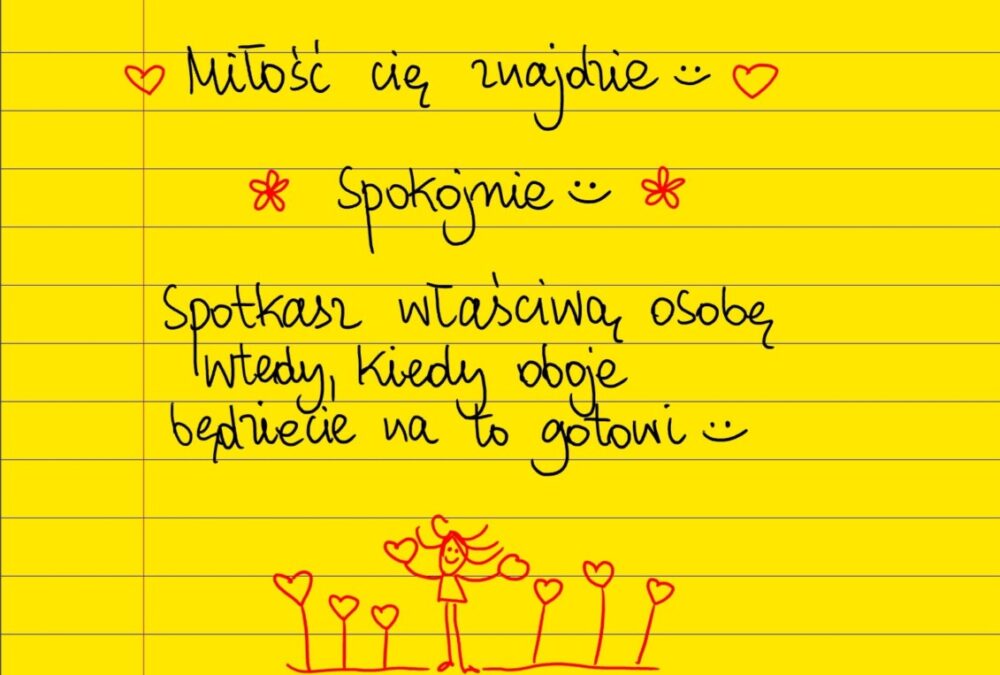 Miłość cię znajdzie :)
Spokojnie :)
Spotkasz właściwą osobę
wtedy, kiedy oboje
będziecie na to gotowi :)